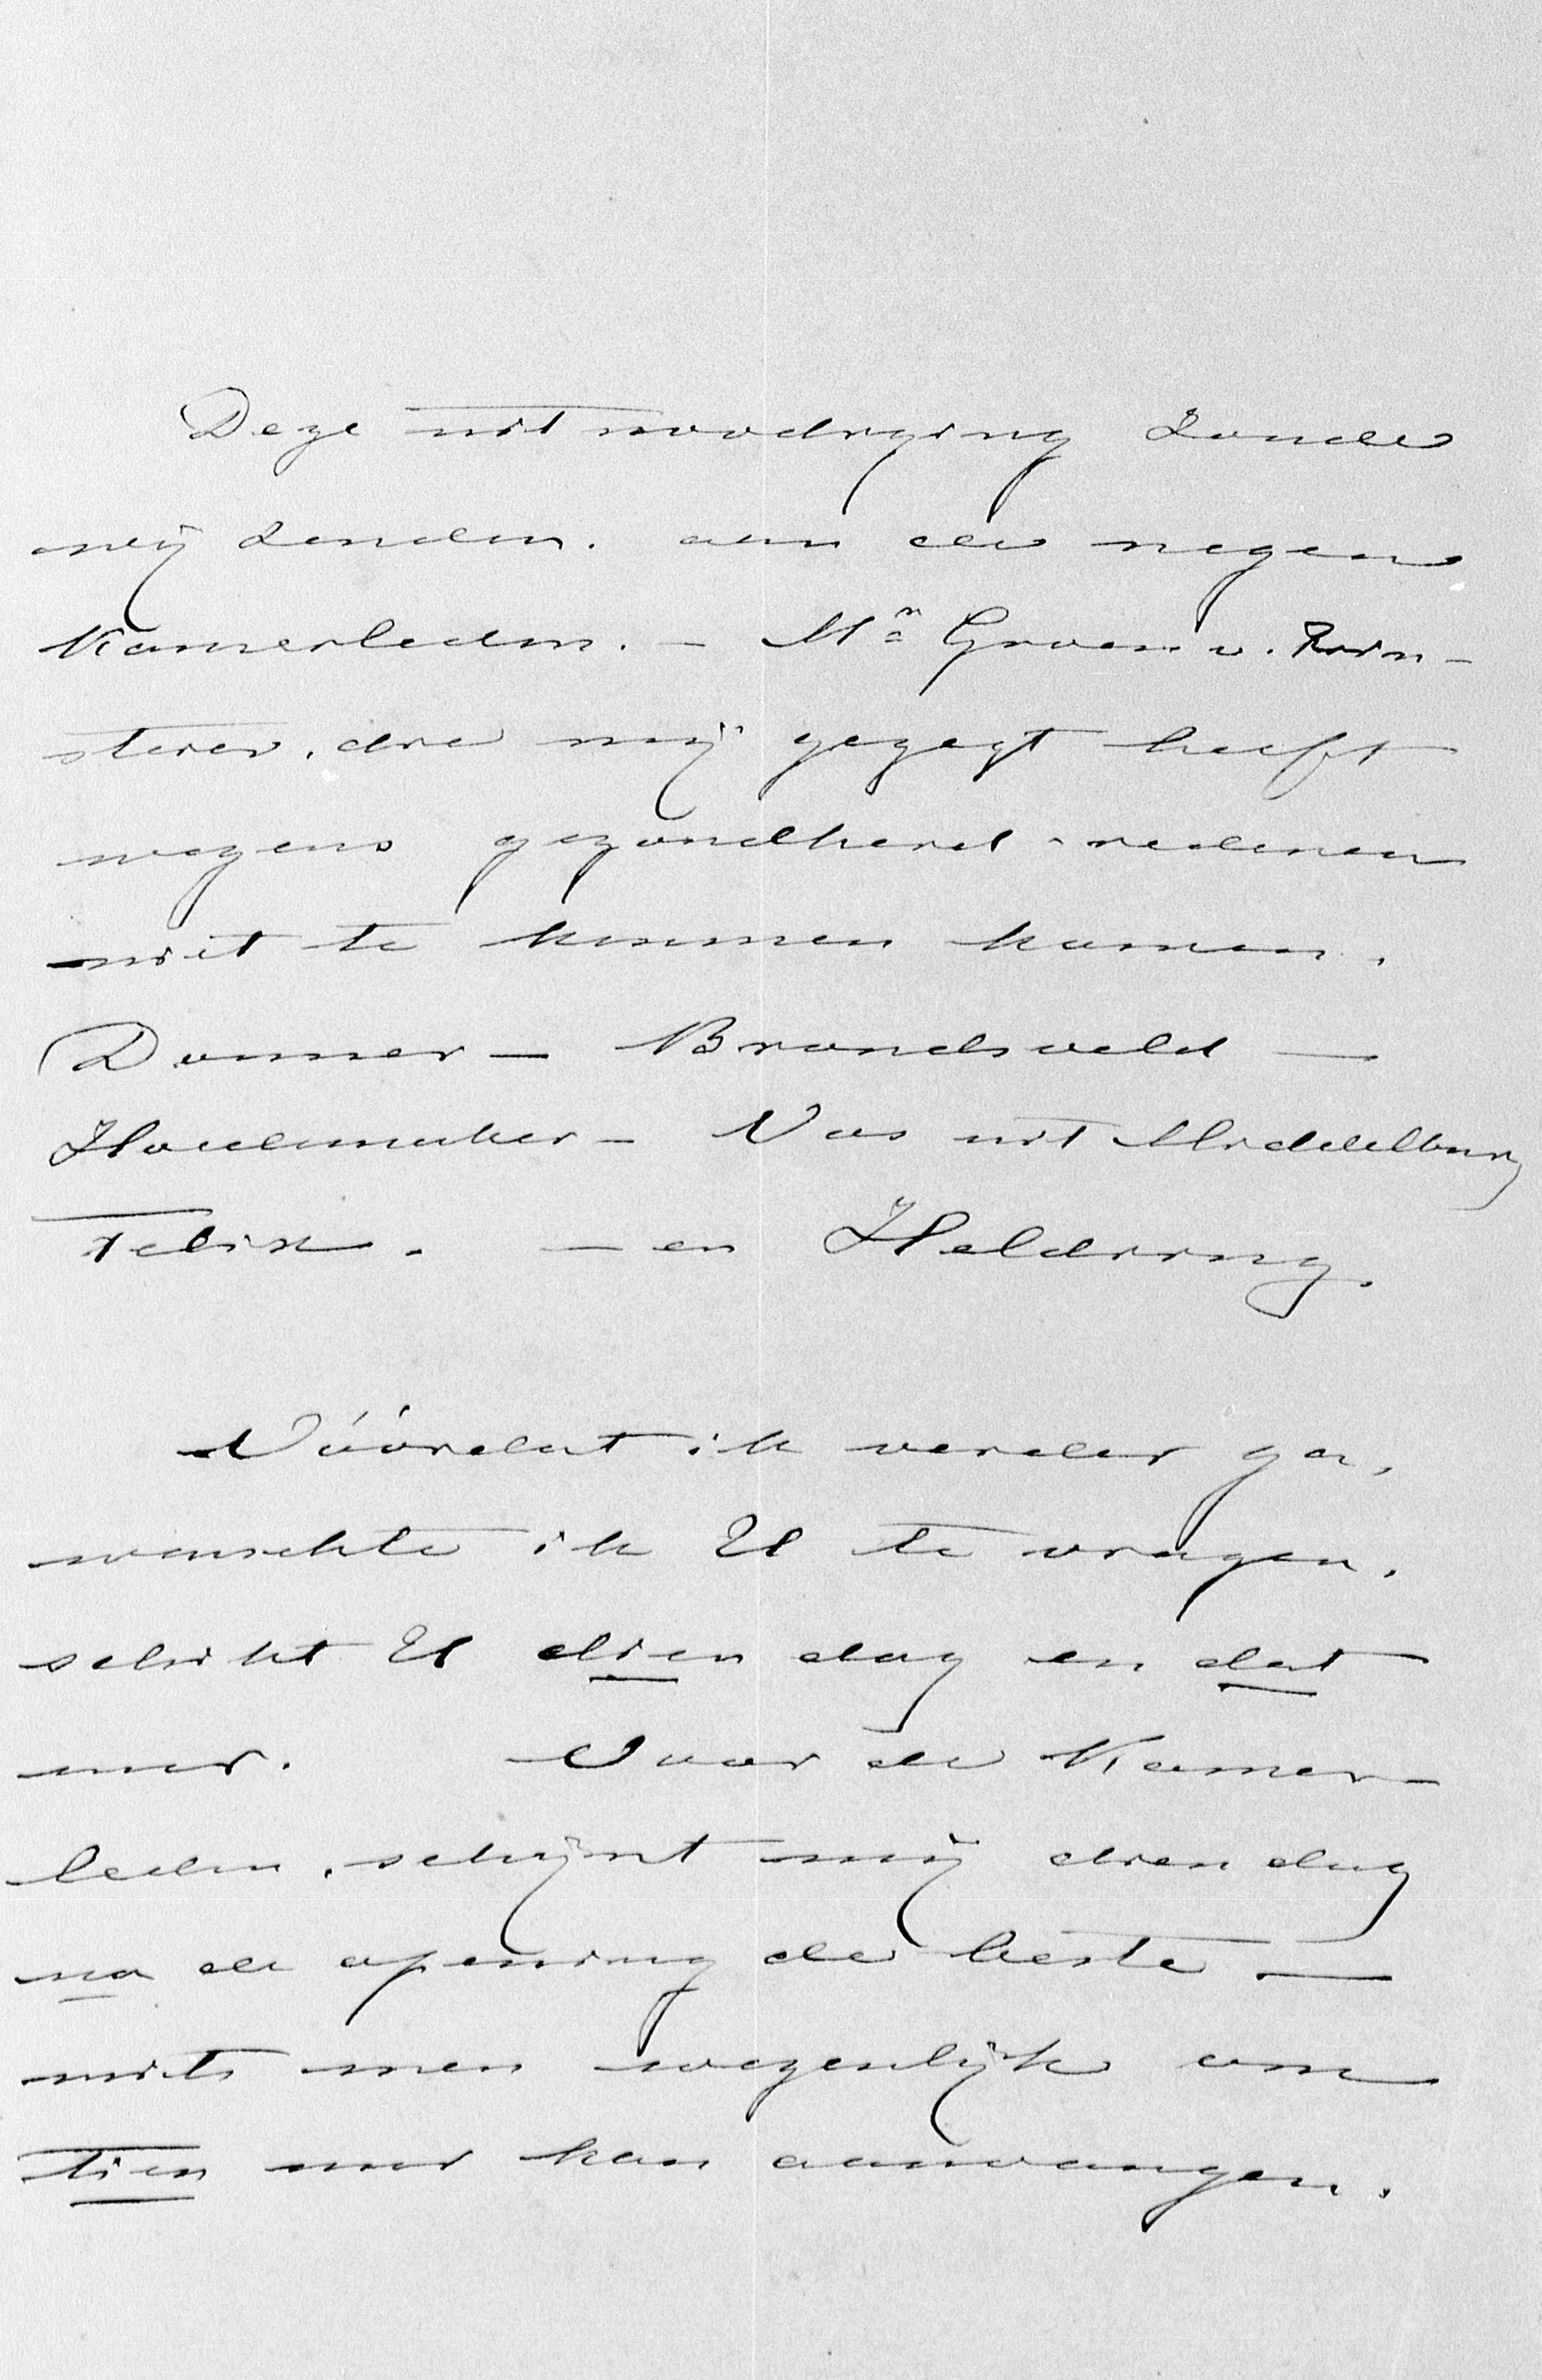 Deze uitnoodiging zonde
wij zenden. aan de negen
Kamerleden. – Mr Groen v. Prin-
sterer. die mij gezegt heeft
wegens gezondheid-redenen
niet te kunnen komen.
Donner – Bronsveld –
Hoedemaker – Vos uit Middelburg
Felix. – en Heldring.
Vóórdat ik verder ga,
wenschte ik U te vragen.
schikt U dien dag en dat
uur. Voor de Kamer-
leden. schijnt mij dien dag
na de opening de beste –
mits men wezenlijk om
tien uur kan aanvangen.